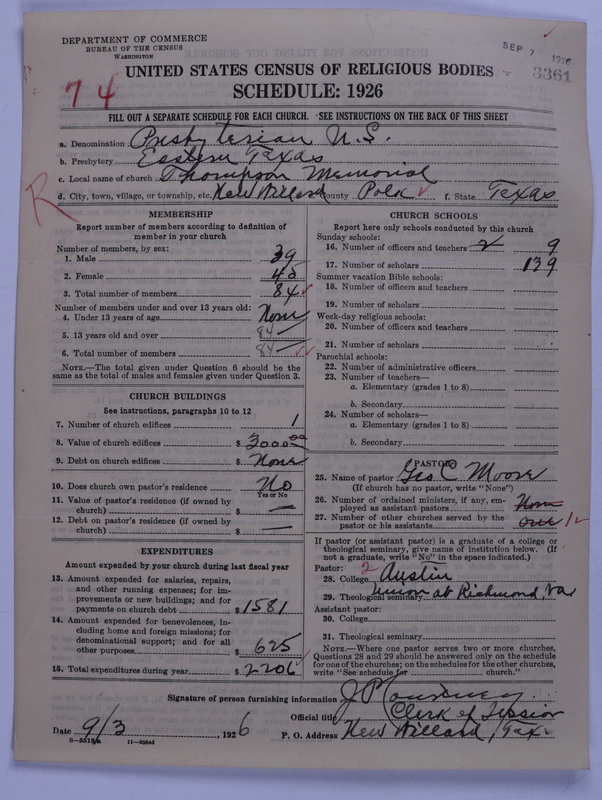 DEPARTMENT OF COMMERCE
BUREAU OF THE CENSUS
WASHINGTON
SEP 7 1926
3361
74
UNITED STATES CENSUS OF RELIGIOUS BODIES
SCHEDULE: 1926
FILL OUT A SEPARATE SCHEDULE FOR EACH CHURCH. SEE INSTRUCTIONS ON THE BACK OF THIS SHEET
a. Denomination Presbyterian U.S.
b. Presbytery Eastern Texas
c. Local name of church Thompson Memorial
R
d. City, town, village, or township, etc. New Willard County Polk f. State Texas
MEMBERSHIP
Report number of members according to definition of
member in your church
Number of members, by sex:
1. Male 39
2. Female 45
3. Total number of members 84
Number of members under and over 13 years old:
4. Under 13 years of age None
5. 13 years old and over 84
6. Total number of members 84
NOTE.—The total given under Question 6 should be the
same as the total of males and females given under Question 3.
CHURCH BUILDINGS
See instructions, paragraphs 10 to 12
7. Number of church edifices 1
8. Value of church edifices $ 3000.00
9. Debt on church edifices $ None
10. Does church own pastor's residence No
Yes or No
11. Value of pastor's residence (if owned by
church) $ —
12. Debt on pastor's residence (if owned by
church) $ —
EXPENDITURES
Amount expended by your church during last fiscal year
13. Amount expended for salaries, repairs,
and other running expenses; for im-
provements or new buildings; and for
payments on church debt $ 1581
14. Amount expended for benevolences, in-
cluding home and foreign missions; for
denominational support; and for all
other purposes $ 625
15. Total expenditures during year $ 2206
CHURCH SCHOOLS
Report here only schools conducted by this church
Sunday schools:
16. Number of officers and teachers 2 9
17. Number of scholars 139
Summer vacation Bible schools:
18. Number of officers and teachers
19. Number of scholars
Week-day religious schools:
20. Number of officers and teachers
21. Number of scholars
Parochial schools:
22. Number of administrative officers
23. Number of teachers—
a. Elementary (grades 1 to 8)
b. Secondary
24. Number of scholars—
a. Elementary (grades 1 to 8)
b. Secondary
PASTOR
25. Name of pastor Geo C Moore
(If church has no pastor, write "None")
26. Number of ordained ministers, if any, em-
ployed as assistant pastors None
27. Number of other churches served by the
pastor or his assistants one
If pastor (or assistant pastor) is a graduate of a college or
theological seminary, give name of institution below. (If
not a graduate, write "No" in the space indicated.)
Pastor: 2
28. College Austin
29. Theological seminary Union at Richmond, Va
Assistant pastor:
30. College
31. Theological seminary
NOTE.—Where one pastor serves two or more churches,
Questions 28 and 29 should be answered only on the schedule
for one of the churches; on the schedules for the other churches,
write "See schedule for church."
Signature of person furnishing information J P
Official title Clerk of Session
Date 9/3, 1926 P. O. Address New Willard, Tex.